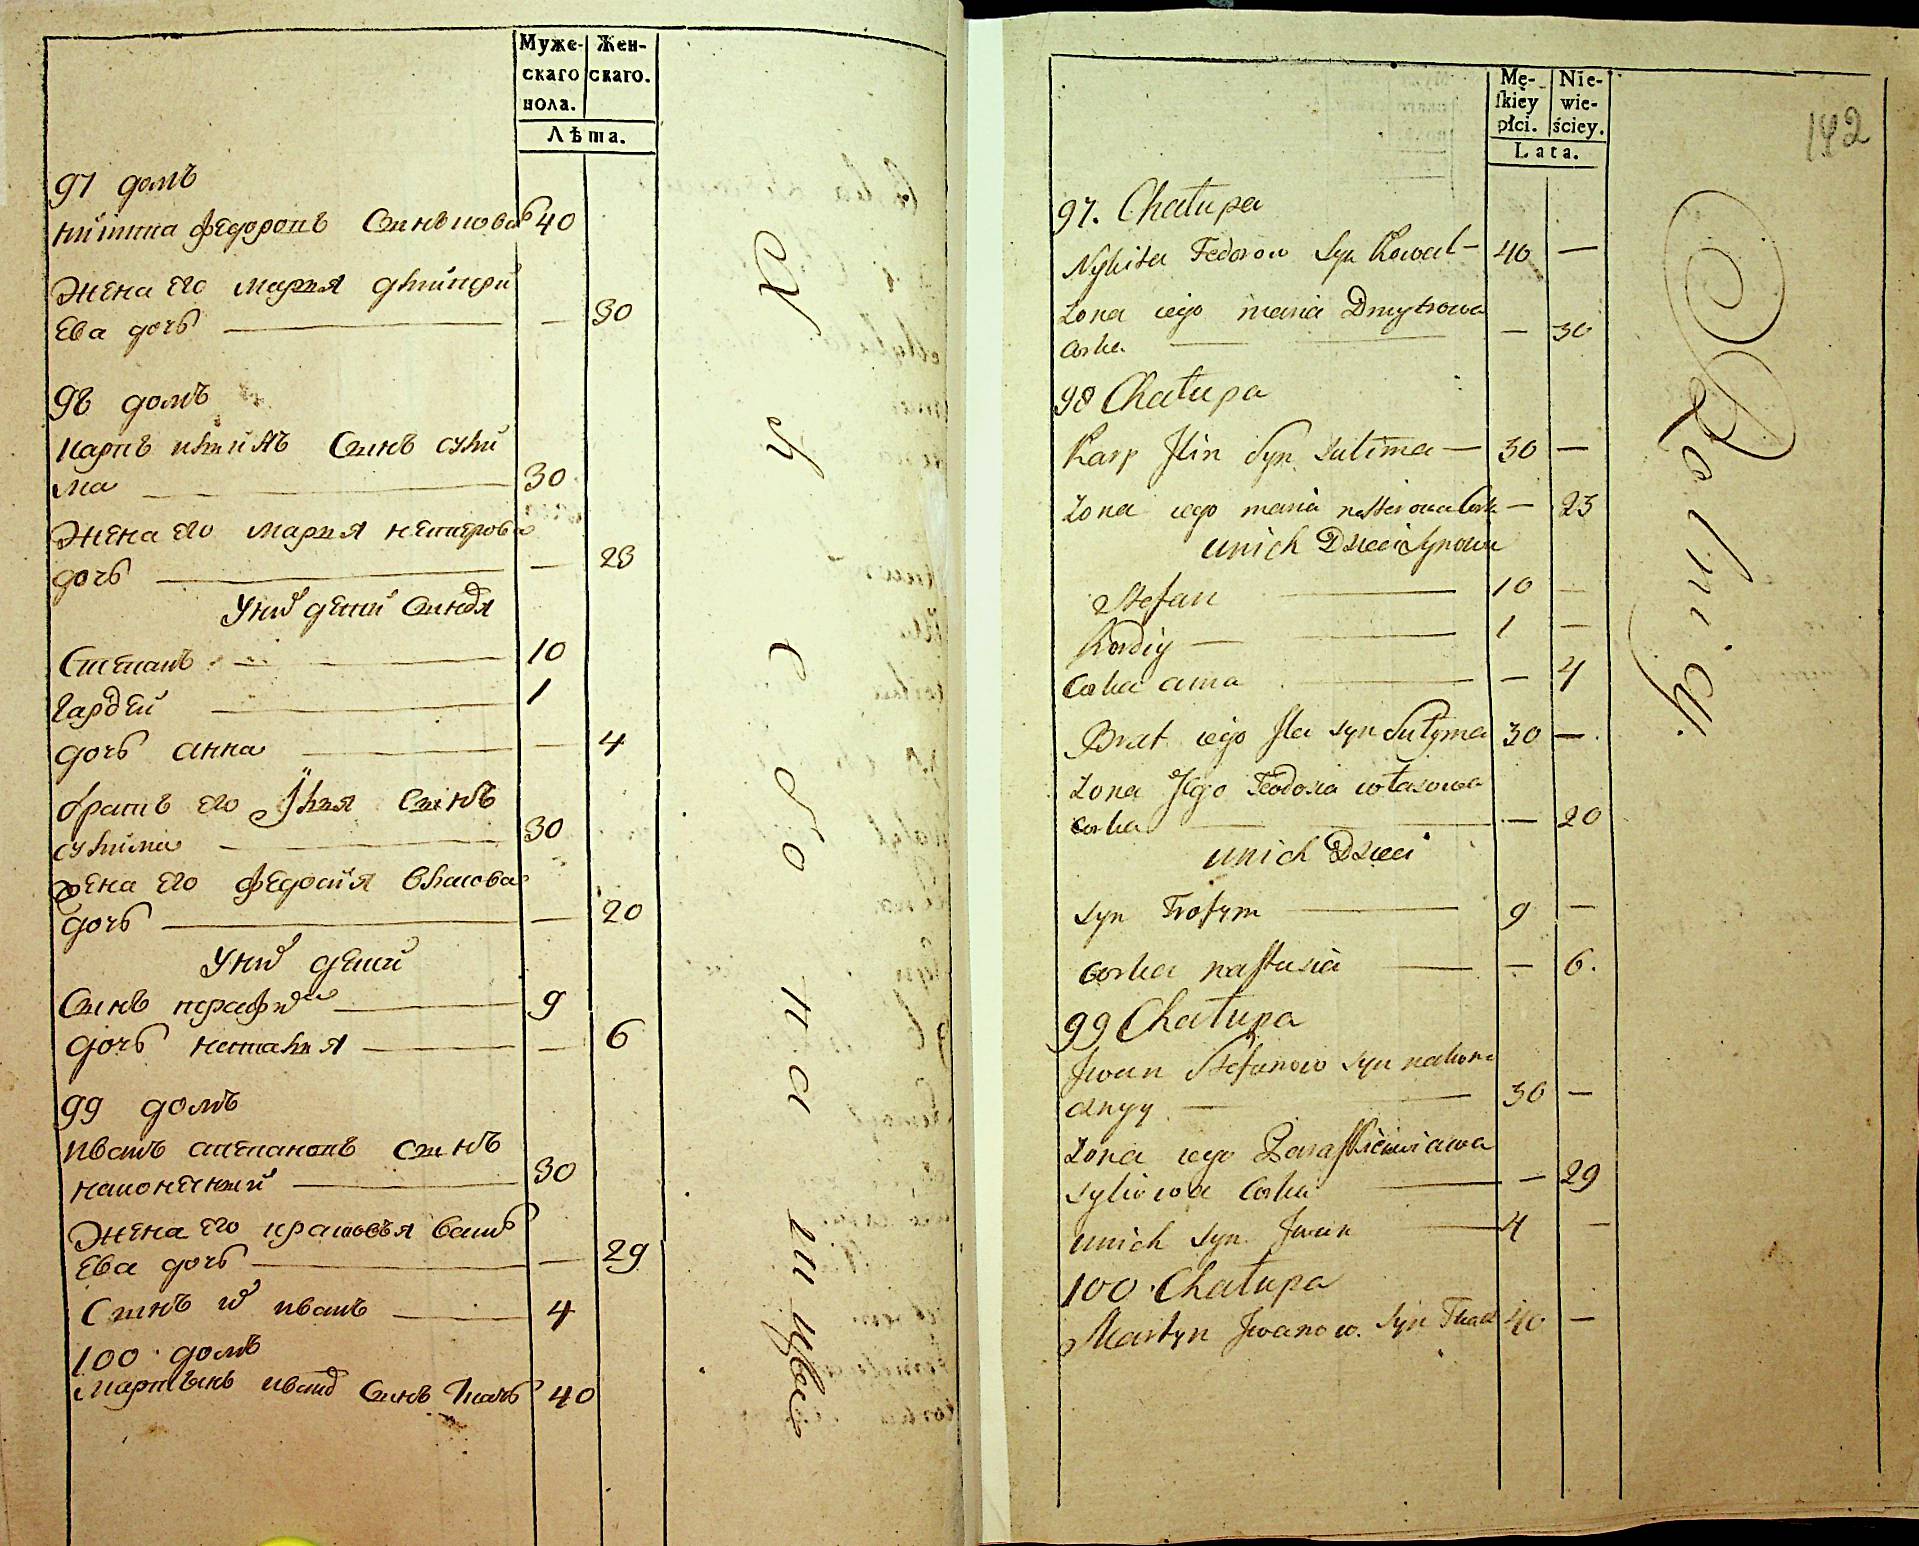 Муже-
скаго
пола.
Жен-
скаго.
Лѣта.
97 домъ
никита федоровъ синъ коваль 40
жена его мария дмитри
ева дочь — — 30
98 домъ
карпъ илиинъ синъ сули
ма — 30
жена его мария нестерова
дочь — — 23
У них дети синовя
Степанъ — 10
Гардей — 1
дочь анна — — 4
братъ его Илия синъ
сулима — 30
жена его федосия власова
дочь — — 20
У них дети
Синъ трафим — 9
дочь наталия — — 6
99 домъ
иванъ степановъ синъ
наконечний — 30
жена его прасковья васил
ева дочь — — 29
Синъ их иванъ — 4
100 домъ
мартинъ иванов синъ ткачъ 40
Mę-
skiey
płci.
Nie-
wie-
ściey.
Lata.
142
97. Chałupa
Nykita Fedorow Syn Kowal — 40 —
Zona iego maria Dmytrowa
Corka — — 30
98 Chałupa
Karp Jlin Syn Sulima — 30 —
Zona iego maria nesterowa Cork — 23
unich Dzieci Synowie
Stefan — 10 —
Kordiy — 1 —
Corka anna — — 4
Brat iego Jla syn Sulyma 30 —
Zona Jego Teodosia własowa
corka — — 20
unich Dzieci
syn Trofym — 9 —
corka nastasia — — 6.
99 Chałupa
Jwan Stefanow syn nakone
cznyy — 30 —
Zona iego Paraskiewia wa
sylowa Corka — — 29
unich syn Jwan — 4 —
100 Chałupa
Martyn Jwanow. syn Tkacz 40 —
Rolnicy